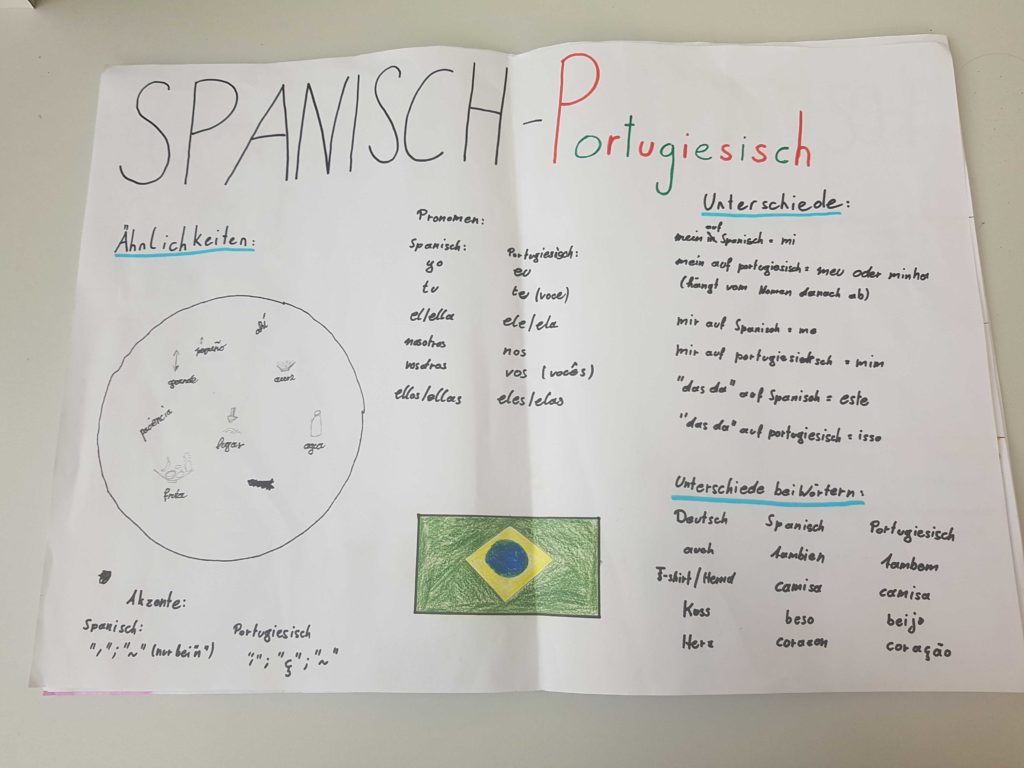 SPANISCH - Portugiesisch
Ähnlichkeiten:
grande
paciencia
agua
Akzente:
Spanisch:
"´"; "~" (nur bei n")
Portugiesisch
"´"; "ç"; "~"
Pronomen:
Spanisch: Portugiesisch:
yo eu
tu tu (voce)
el/ella ele/ela
nosotros nos
vosdros vos (vocês)
ellos/ellas eles/elas
Unterschiede:
mein auf Spanisch = mi
mein auf portugiesisch = meu oder minha
(hängt vom Nomen danach ab)
mir auf Spanisch = me
mir auf portugiesisch = mim
"das da" auf Spanisch = este
"das da" auf portugiesisch = isso
Unterschiede bei Wörtern:
Deutsch Spanisch Portugiesisch
auch tambien tambem
T-shirt/Hemd camisa camisa
Kuss beso beijo
Herz corazon coração